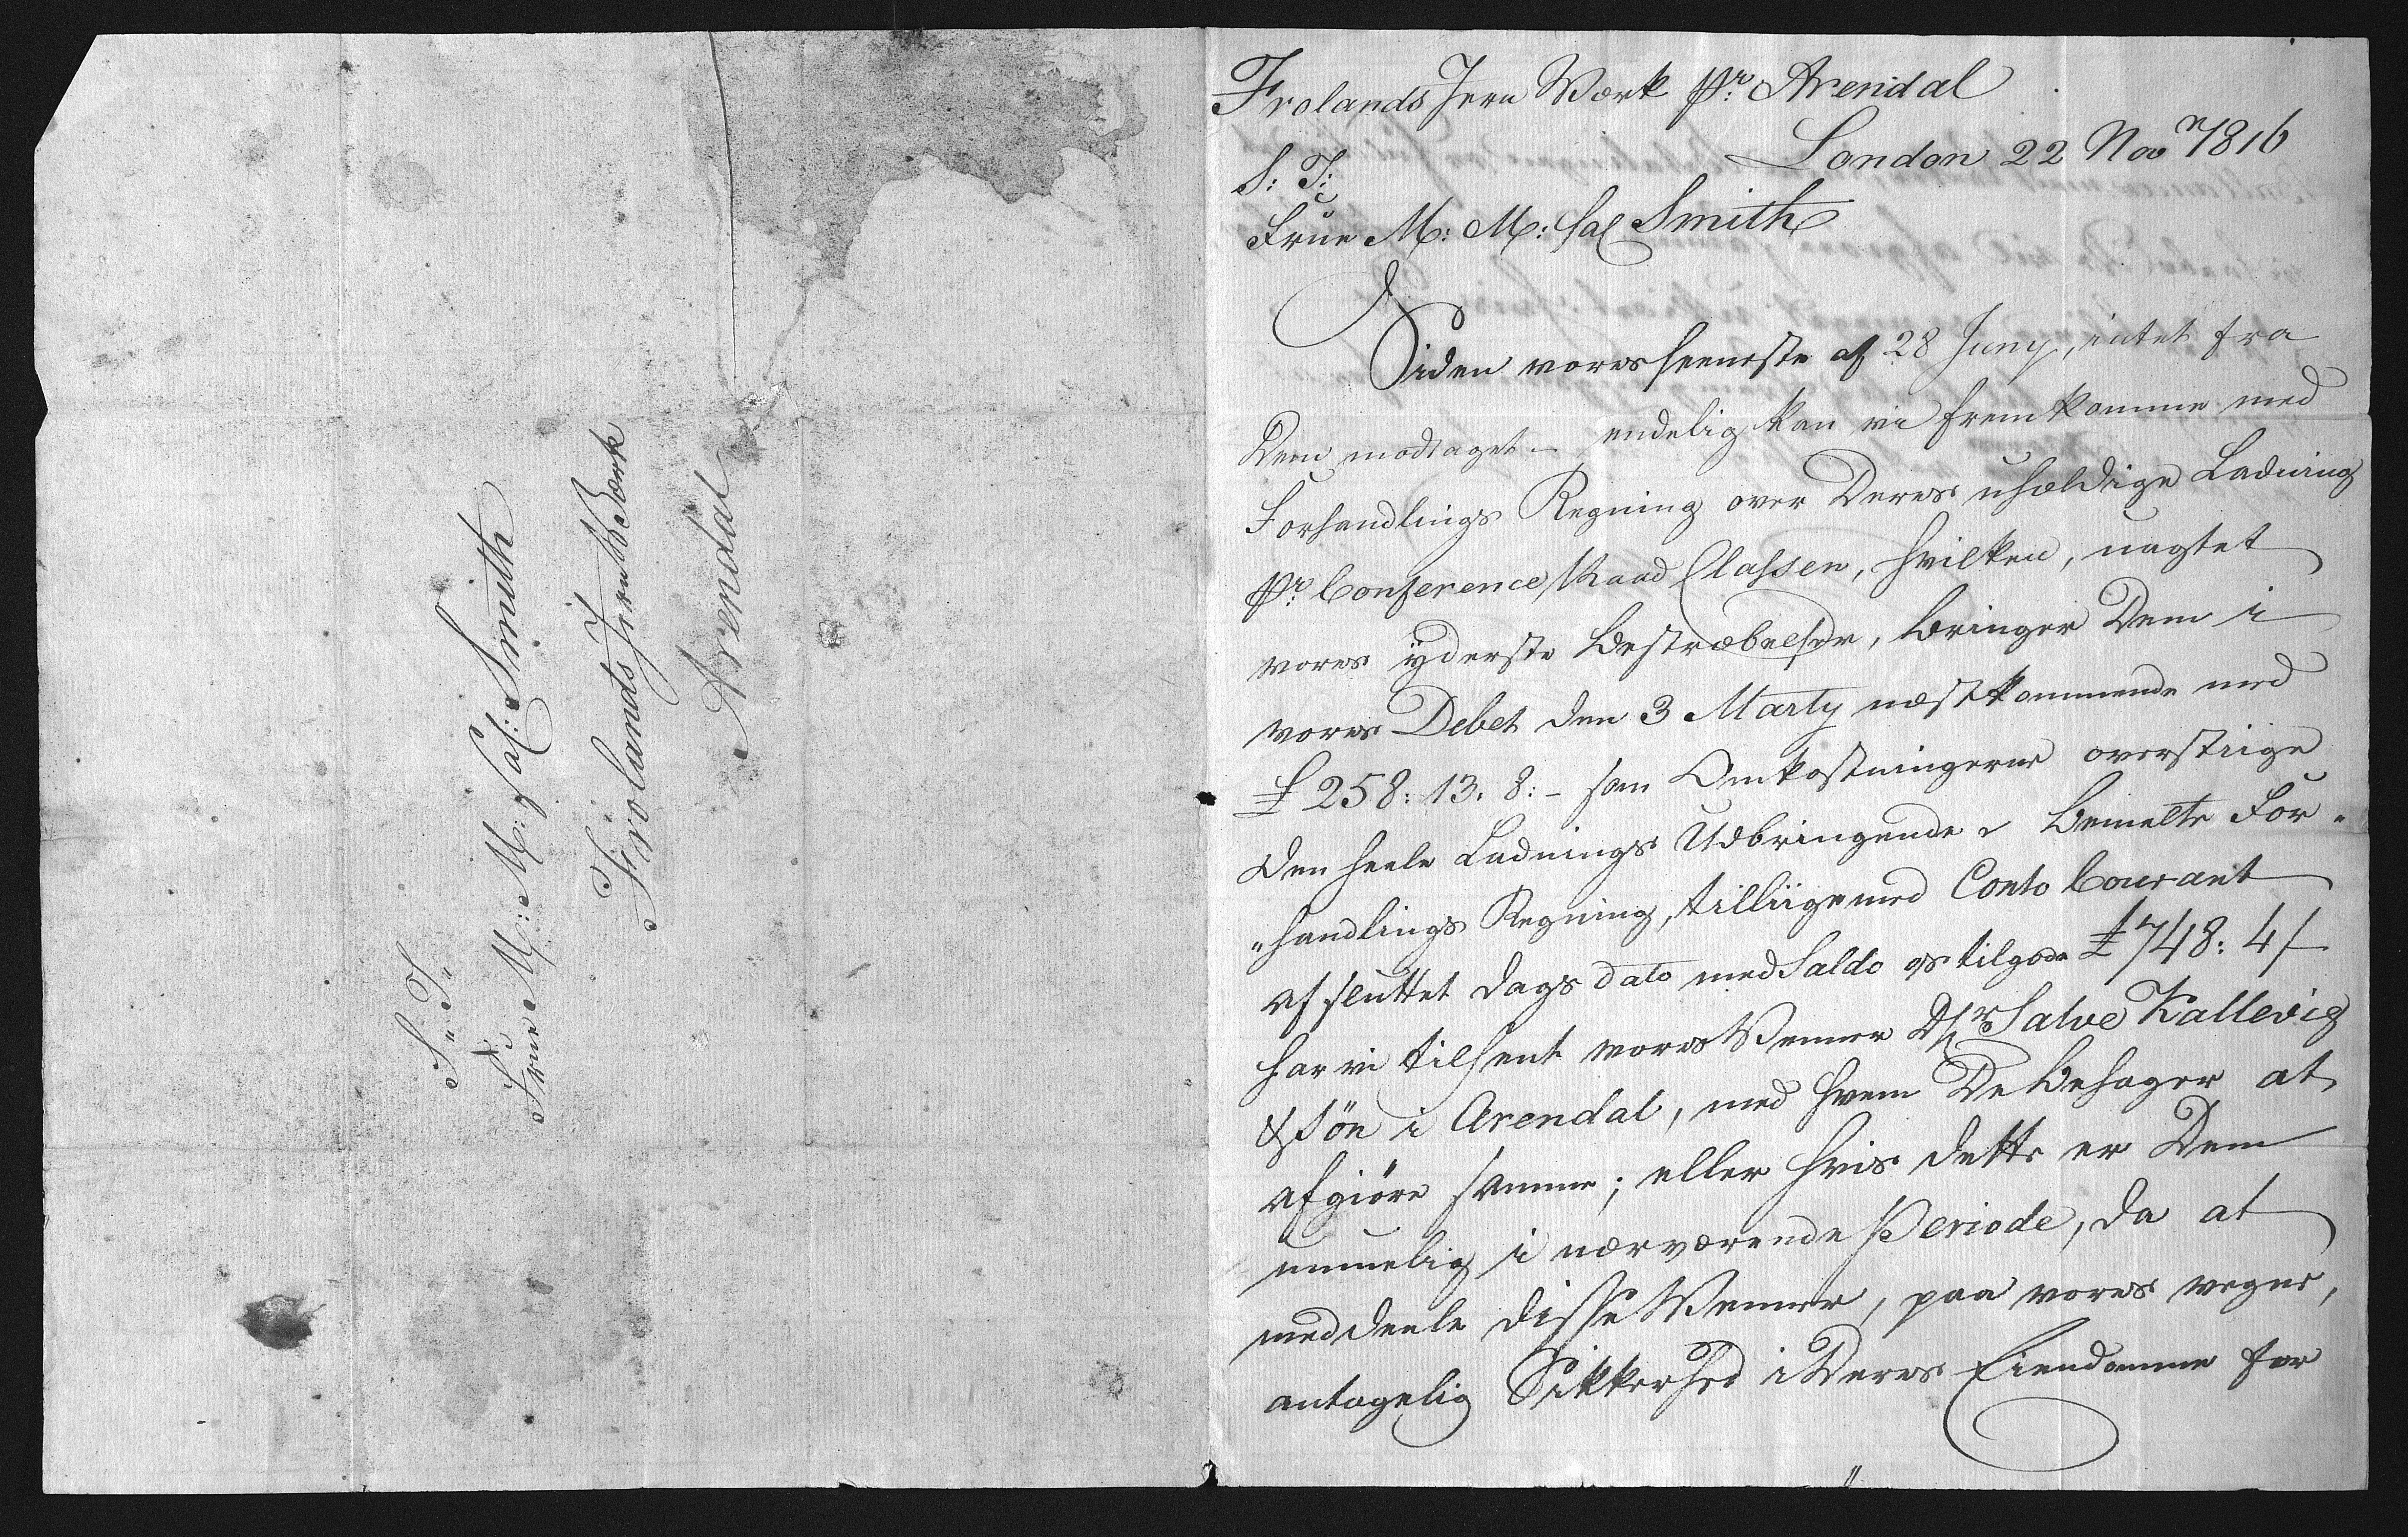 S: T:
Frue M: M: sal: Smith
Frolands Jern Værk
Arendal
Frolands Jern Værk pr: Arendal
London 22 Novr 1816
S: T:
Frue M: M: sal Smith
Siden vores seeneste af 28 Juny, intet fra
Dem modtaget – endelig kan vi fremkomme med
Forhandlings Regning over Deres uheldige Ladning
pr: Conference Raad Classen, hvilken, uagtet
vores yderste Bestræbelser, bringer Dem i
vores Debet den 3 Marty næstkommende med
£ 258: 13. 8:– som Omkostningerne overstiige
den heele Ladnings Udbringende. Bemelte For„
„handlings Regning, tilliigemed Conto Courant
afsluttet dags dato med Saldo os tilgode £ 748: 4/–
har vi tilsent vores Venner Hr Salve Kallevig
& Søn i Arendal, med hvem De behager at
afgiøre samme; eller hvis dette er Dem
umuelig i nærværende Periode, da at
meddeele disse Venner, paa vores vegne,
antagelig Sikkerhed i Deres Eiendomme for